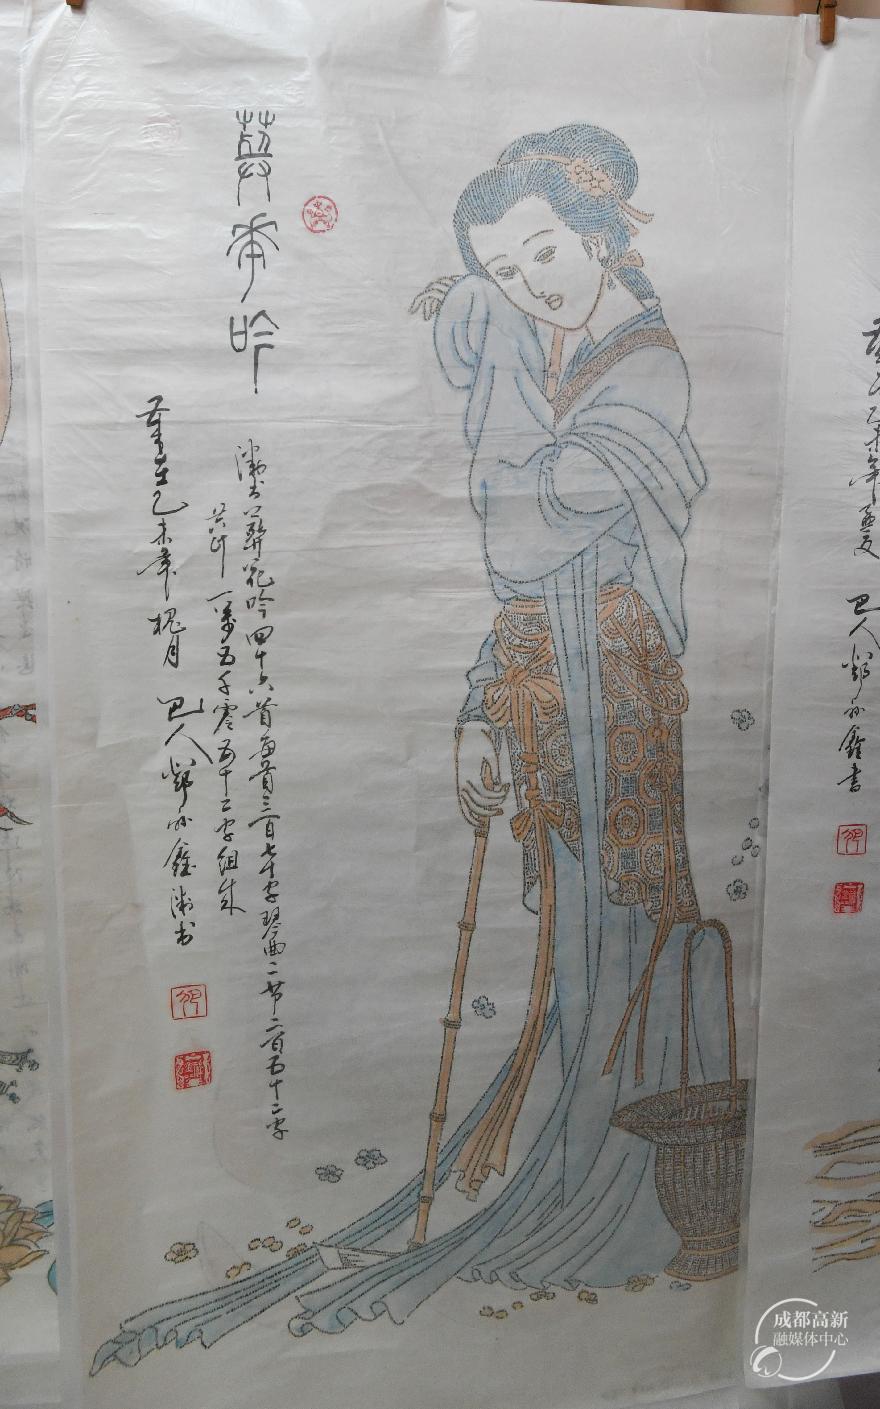 葬花吟
微书葬花吟四十六首每首三百七十字琴曲二节二百五十二字
共计一万五千零五十二字组成
岁在乙未年槐月 巴人 鑫微书
乙未年夏 巴人 鑫书
成都高新
融媒体中心